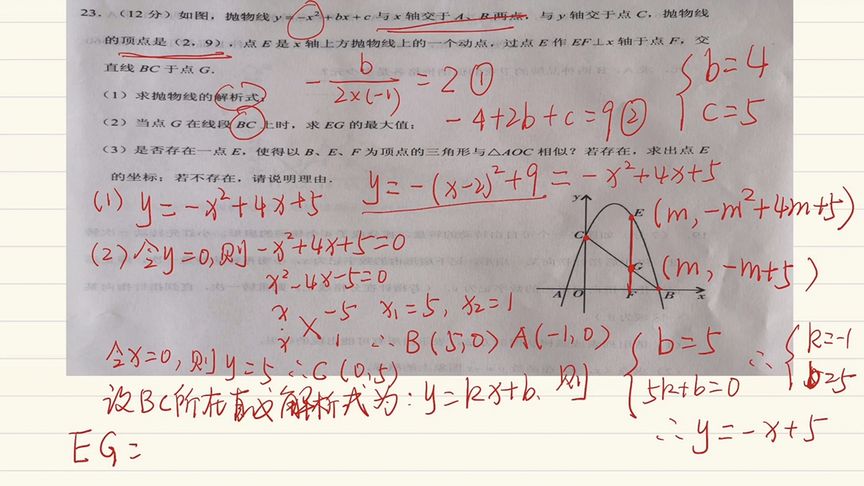 23. (12分) 如图，抛物线 y=-x²+bx+c 与 x 轴交于 A、B 两点，与 y 轴交于点 C，抛物线
的顶点是 (2, 9)，点 E 是 x 轴上方抛物线上的一个动点，过点 E 作 EF⊥x 轴于点 F，交
直线 BC 于点 G.
-b/2×(-1)=2①
{b=4
c=5
(1) 求抛物线的解析式；
(2) 当点 G 在线段 BC 上时，求 EG 的最大值；
-4+2b+c=9②
(3) 是否存在一点 E，使得以 B、E、F 为顶点的三角形与△AOC 相似？若存在，求出点 E
的坐标；若不存在，请说明理由．
y=-(x-2)²+9=-x²+4x+5
(1) y=-x²+4x+5
(2) 令y=0,则-x²+4x+5=0
x²-4x-5=0
x -5 x₁=5, x₂=1
x 1 ∴B(5,0) A(-1,0)
令x=0,则y=5∴C(0,5)
设BC所在直线解析式为:y=kx+b.则
{b=5
5k+b=0
∴{k=-1
b=5
∴y=-x+5
EG=
y
E (m,-m²+4m+5)
C
G (m,-m+5)
A O F B x